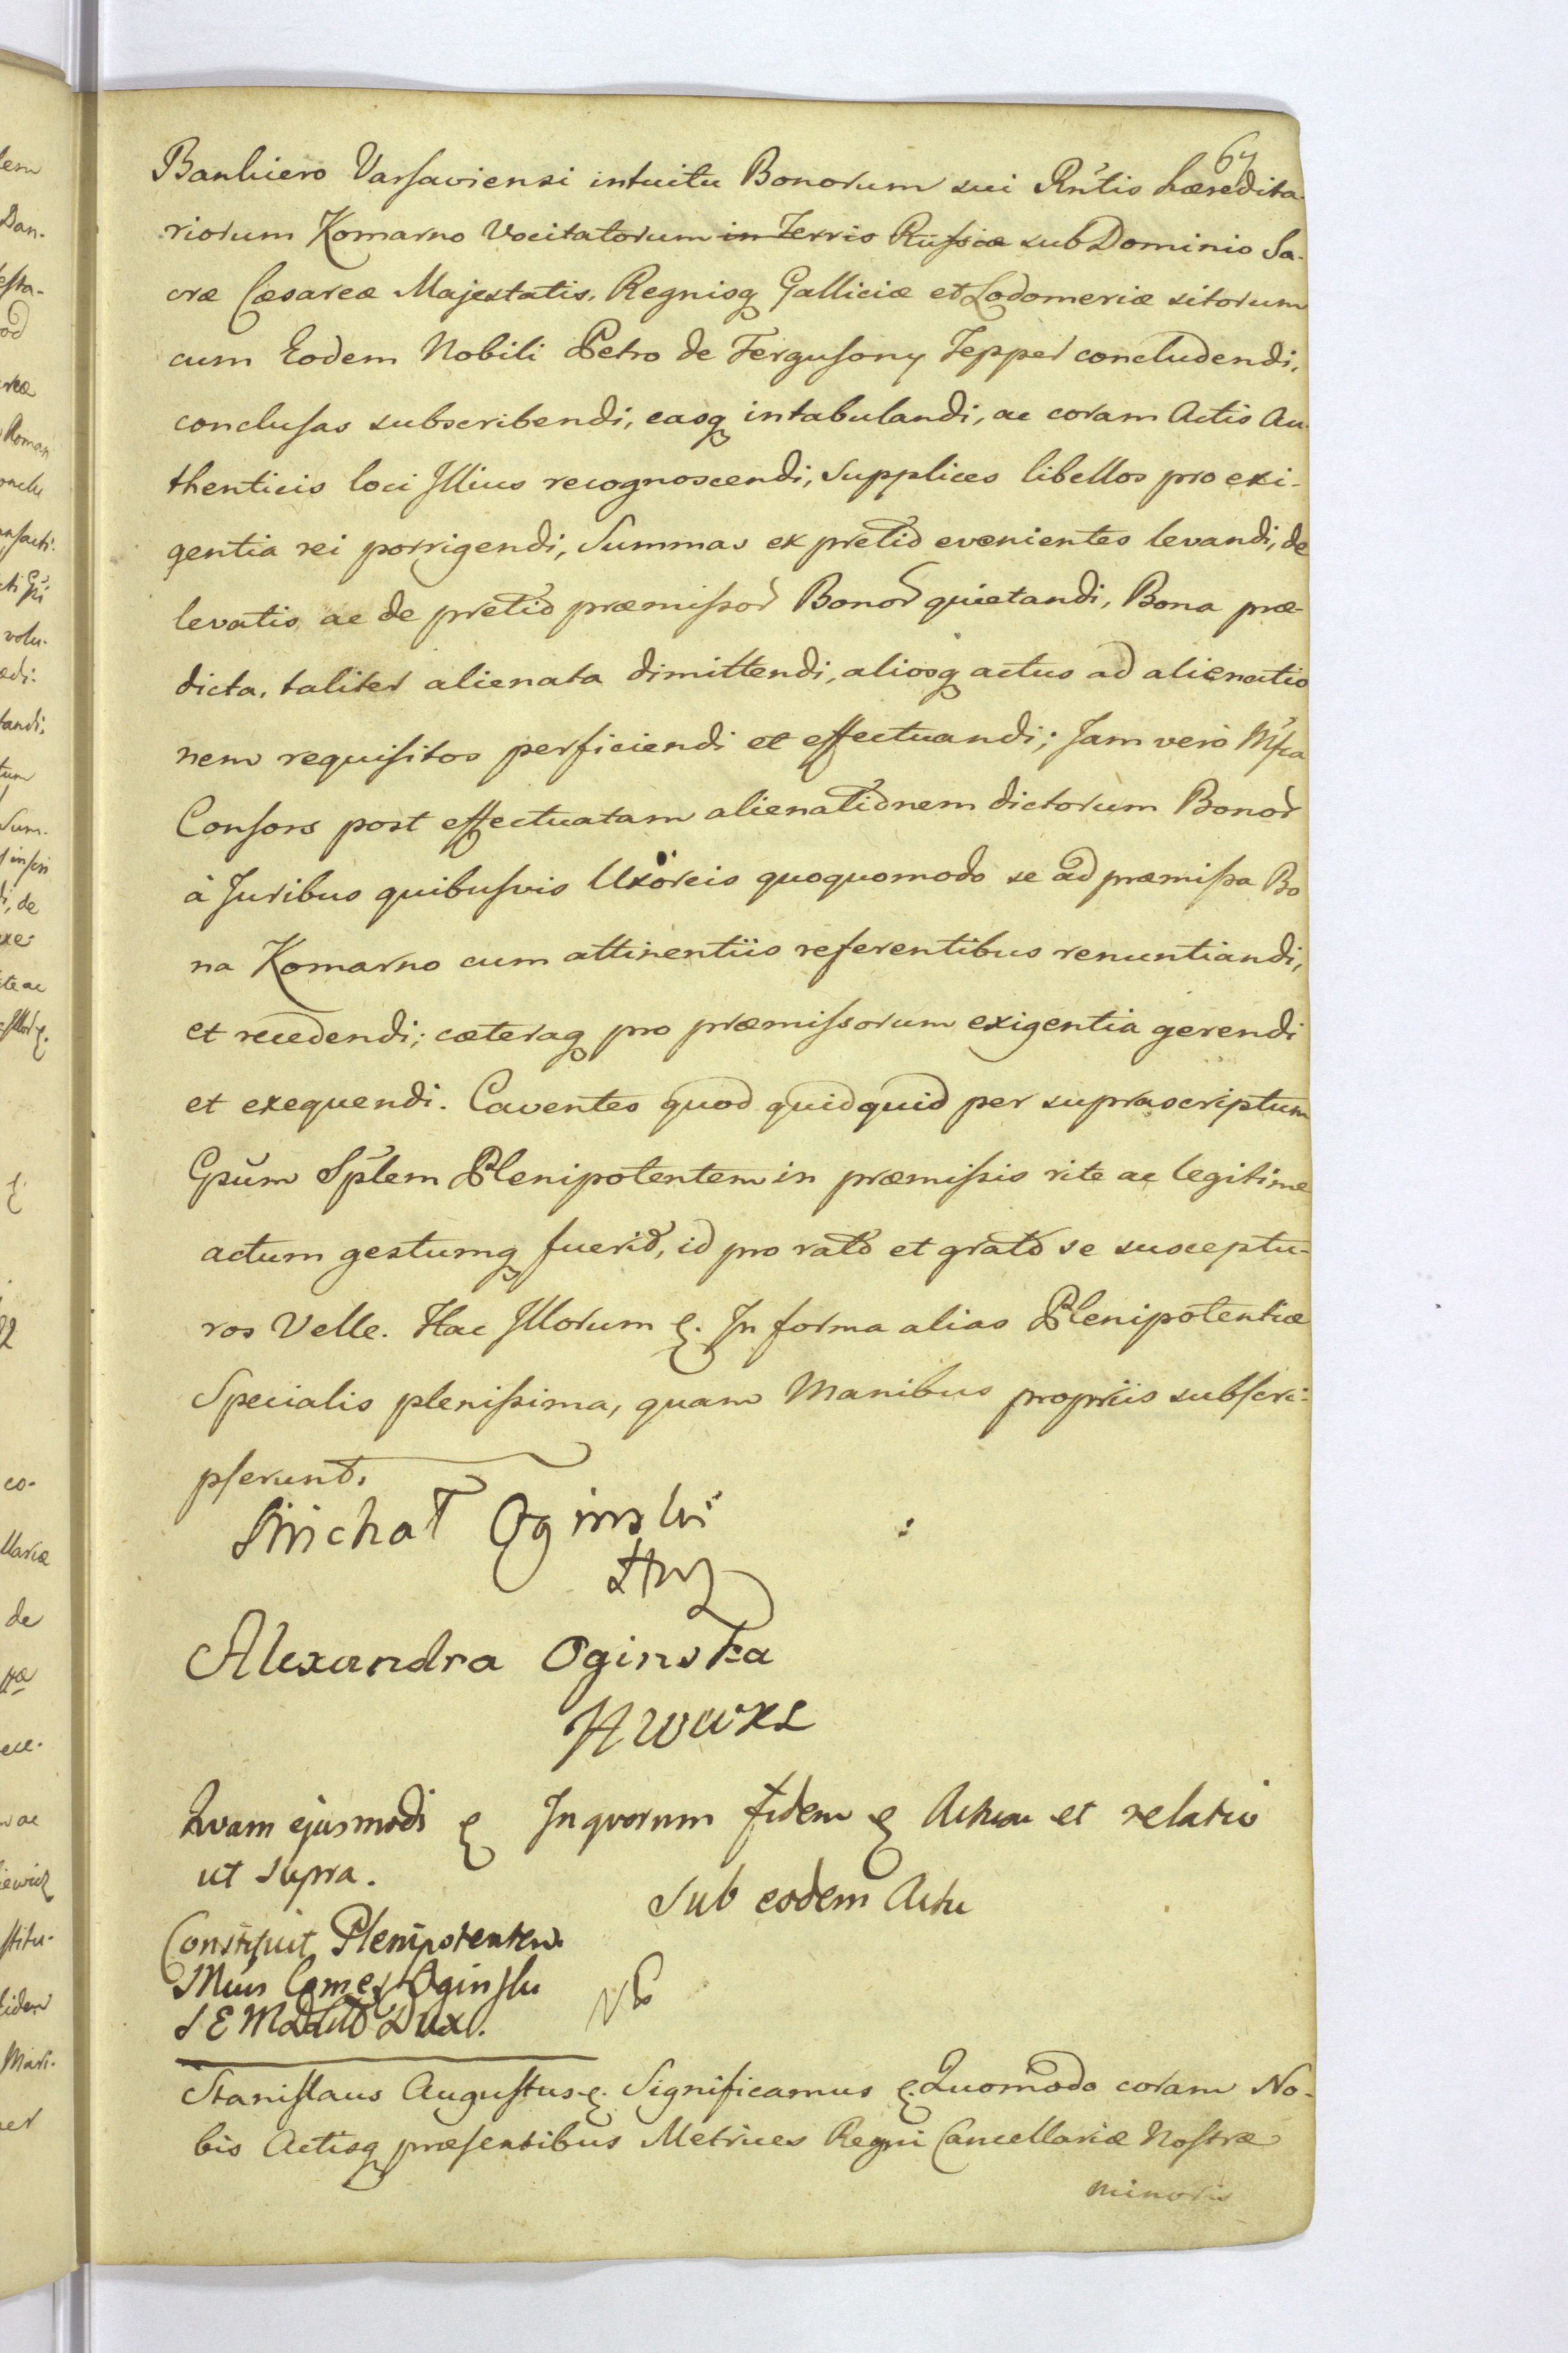 67
Bankiero Varsaviensi intuitu Bonorum sui Rntis hæredita-
riorum Komarno Vocitatorum in Terris Russiæ sub Dominio Sa-
cræ Cæsareæ Majestatis, Regnisq Galliciæ et Lodomeriæ sitorum
cum Eodem Nobili Petro de Fergusony Tepper concludendi,
conclusas subscribendi, easq intabulandi, ac coram Actis Au-
thenticis loci Illius recognoscendi, Supplices libellos pro exi-
gentia rei porrigendi, Summas ex pretio evenientes levandi, de
levatis ac de pretio præmissor Bonor quietandi, Bona præ-
dicta, taliter alienata dimittendi, aliosq actus ad alienatio
nem requisitos perficiendi et effectuandi; Jam vero Mfca
Consors post effectuatam alienationem dictorum Bonor
à Juribus quibusvis Uxoreis quoquomodo se ad præmissa Bo
na Komarno cum attinentiis referentibus renuntiandi,
et recedendi; cæteraq pro præmissorum exigentia gerendi
et exequendi. Caventes quod quidquid per suprascriptum
Gsum Splem Plenipotentem in præmissis rite ac legitime
actum gestumq fuerit, id pro rato et grato se susceptu-
ros Velle. Hac Illorum &. In forma alias Plenipotentiæ
Specialis plenissima, quam Manibus propriis subscri-
pserunt.
Michał Oginski
HW
Alexandra Oginska
HWWXL
Qvam ejusmodi & In qvorum fidem & Actum et relatio
ut supra.
Sub eodem Actu
Constituit Plenipotentem
Mcus Comes Oginski
S E M D Litt Dux.
Stanislaus Augustus &. Significamus &. Quomodo coram No-
bis Actisq præsentibus Metrices Regni Cancellariæ Nostræ
minoris